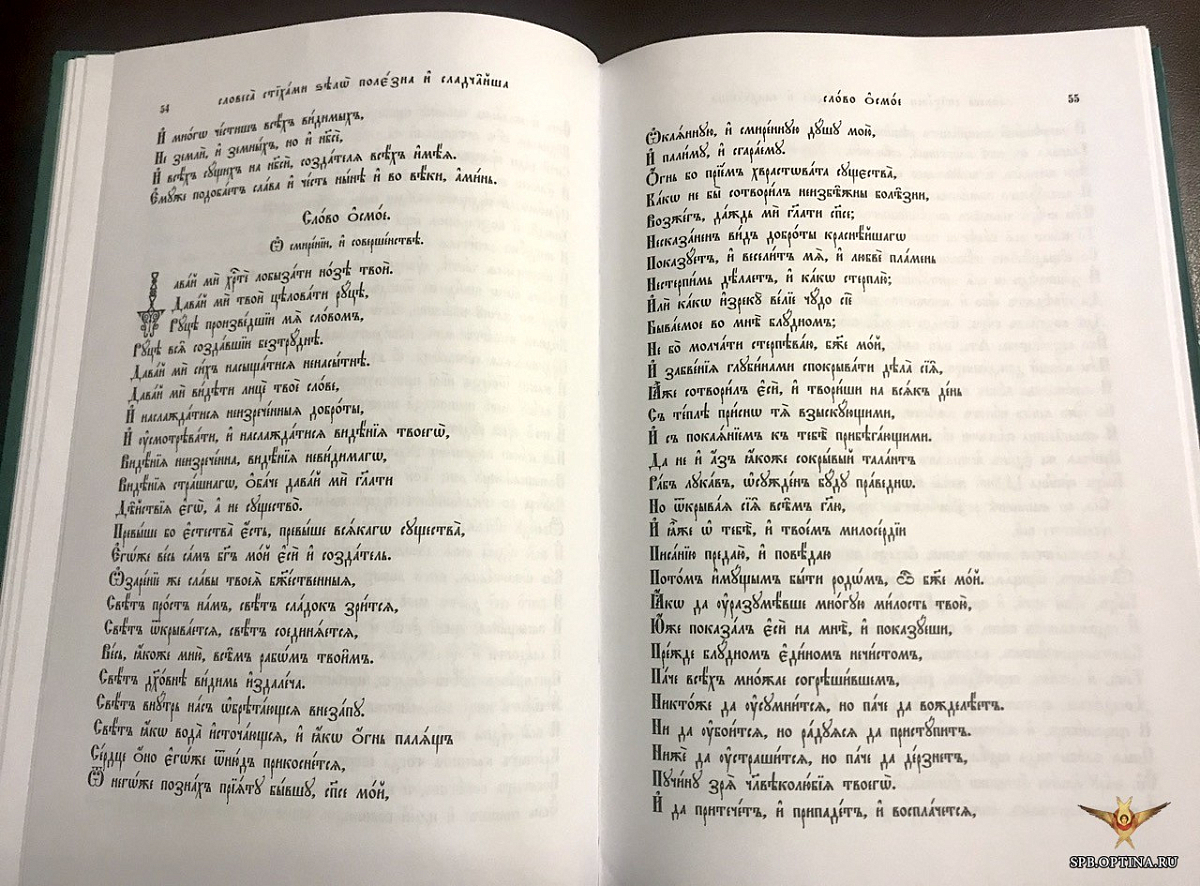 54
словеса̀ стїха́ми ѕѣлѡ̀ поле́зна и҆ сладча̑йша
И҆ мно́гѡ че́стнѣишъ всѣ́хъ ви́димыхъ,
Не землѝ, и҆ земны́хъ, но и҆ нб҃сѐ,
И҆ всѣ́хъ сꙋ́щихъ на нб҃сѝ, созда́телѧ всѣ́хъ и҆мѣ́ѧ.
Є҆мꙋ́же подоба́етъ сла́ва и҆ че́сть ны́нѣ и҆ во вѣ́ки, а҆ми́нь.
Сло́во ѻ҆смо́е.
Ѽ смире́нїи, и҆ соверше́нствѣ.
Дава́й мѝ хрⷭ҇тѐ лобыза́ти но́зѣ твоѝ.
Дава́й мѝ твоѝ цѣлова́ти рꙋ́цѣ,
Рꙋ́цѣ произве́дшїи мѧ̀ сло́вомъ,
Рꙋ́цѣ всѧ̑ созда́вшїи безтрꙋ́днѣ.
Дава́й мѝ си́хъ насыща́тисѧ ненасы́тнѣ.
Дава́й мѝ ви́дѣти лицѐ твоѐ сло́ве,
И҆ наслажда́тисѧ неизрече́нныѧ добро́ты,
И҆ ᲂу҆смотрѣва́ти, и҆ наслажда́тисѧ видѣ́нїѧ твоегѡ̀,
Видѣ́нїѧ неизрече́нна, видѣ́нїѧ неви́димагѡ,
Видѣ́нїѧ стра́шнагѡ, ѻ҆ба́че дава́й мѝ гл҃ати
Дѣ̑йствїѧ є҆гѡ̀, а҆ не сꙋщество̀.
Превы́ше бо є҆стества̀ є҆́сть, превы́ше всѧ́кагѡ сꙋщества̀,
Є҆гѡ́же ве́сь са́мъ бг҃ъ мо́й є҆сѝ и҆ созда́тель.
Ѽзаре́нїе же сла́вы твоеѧ̀ бж҃е́ственныѧ,
Свѣ́тъ про́стъ на́мъ, свѣ́тъ сла́докъ зри́тсѧ,
Свѣ́тъ ѿкрыва́етсѧ, свѣ́тъ соединѧ́етсѧ,
Ве́сь, ꙗ҆́коже мню̀, всѣ́мъ рабѡ́мъ твои̑мъ.
Свѣ́тъ дх҃о́внѣ ви́димь и҆здале́ча.
Свѣ́тъ внꙋ́трь на́съ ѡ҆брѣта́ющсѧ внеза́пꙋ.
Свѣ́тъ ꙗ҆́кѡ вода̀ и҆сточа́ющсѧ, и҆ ꙗ҆́кѡ ѻ҆́гнь палѧ́щъ
Се́рдце ѻ҆́но є҆гѡ́же ѿню́дъ прикоснетсѧ,
Ѿ негѡ́же позна́хъ прїѧ́тꙋ бы́вшꙋ, сп҃се мо́й,
55
сло́во ѻ҆смо́е
Ѽкаѧ́ннꙋю, и҆ смире́ннꙋю дꙋ́шꙋ мою̀,
И҆ пали́мꙋ, и҆ сгара́емꙋ.
Ѻ҆́гнь бо прїе́мъ хврастѡва́та сꙋщества̀,
Ка́кѡ не бы̀ сотвори́лъ неизбѣ̑жны болѣ̑зни,
Возже́гъ, да́ждь мѝ гл҃ати сп҃се;
Несказа́ненъ ви́дъ добро́ты краснѣ́йшагѡ
Пока́зꙋетъ, и҆ весели́тъ мѧ̀, и҆ любвѐ пла́мень
Нестерпи́мь дѣ́лаетъ, и҆ ка́кѡ стерплю̀;
И҆лѝ ка́кѡ и҆зрекꙋ̀ ве́лїе чꙋ́до сїѐ
Быва́емое во мнѣ̀ блꙋ́дномъ;
Не бо̀ молча́ти стерпѣва́ю, бж҃е мо́й,
И҆ забве́нїѧ глꙋбина́ми спокрыва́ти дѣла̀ сїѧ̑,
Ꙗ҆̀же сотвори́лъ є҆сѝ, и҆ твори́ши на всѧ́къ де́нь
Съ те́плѣ при́снѡ тѧ̀ взы́скꙋющими,
И҆ съ покаѧ́нїемъ къ тебѣ̀ прибѣга́ющими.
Да не и҆ а҆́зъ ꙗ҆́коже сокры́вый тала́нтъ
Ра́бъ лꙋка́въ, ѡ҆сꙋжде́нъ бꙋ́дꙋ пра́веднѡ.
Но ѿкрыва́ѧ сїѧ̑ всѣ̑мъ гл҃ю,
И҆ ꙗ҆̀же ѡ҆ тебѣ̀, и҆ твое́мъ милосе́рдїи
Писа́нїю предаю̀, и҆ повѣ́даю
Пото́мъ и҆мꙋ́щымъ бы́ти родѡ́мъ, ѽ бж҃е мо́й.
Ꙗ҆́кѡ да ᲂу҆разꙋмѣ́вше мно́гꙋю ми́лость твою̀,
Ю҆́же показа́лъ є҆сѝ на мнѣ̀, и҆ пока́зꙋеши,
Пре́жде блꙋ́дномъ є҆ди́номъ нечи́стомъ,
Па́че всѣ́хъ мно́жае согрѣши́вшемъ,
Никто́же да ᲂу҆сꙋмни́тсѧ, но па́че да вожделѣ́етъ.
Ни да ᲂу҆бои́тсѧ, но ра́дꙋѧсѧ да пристꙋ́питъ.
Нижѐ да ᲂу҆страши́тсѧ, но па́че да де́рзнетъ,
Пꙋчи́нꙋ зрѧ̀ чл҃вѣколю́бїѧ твоегѡ̀.
И҆ да притече́тъ, и҆ припаде́тъ, и҆ воспла́четсѧ,
SPB.OPTINA.RU